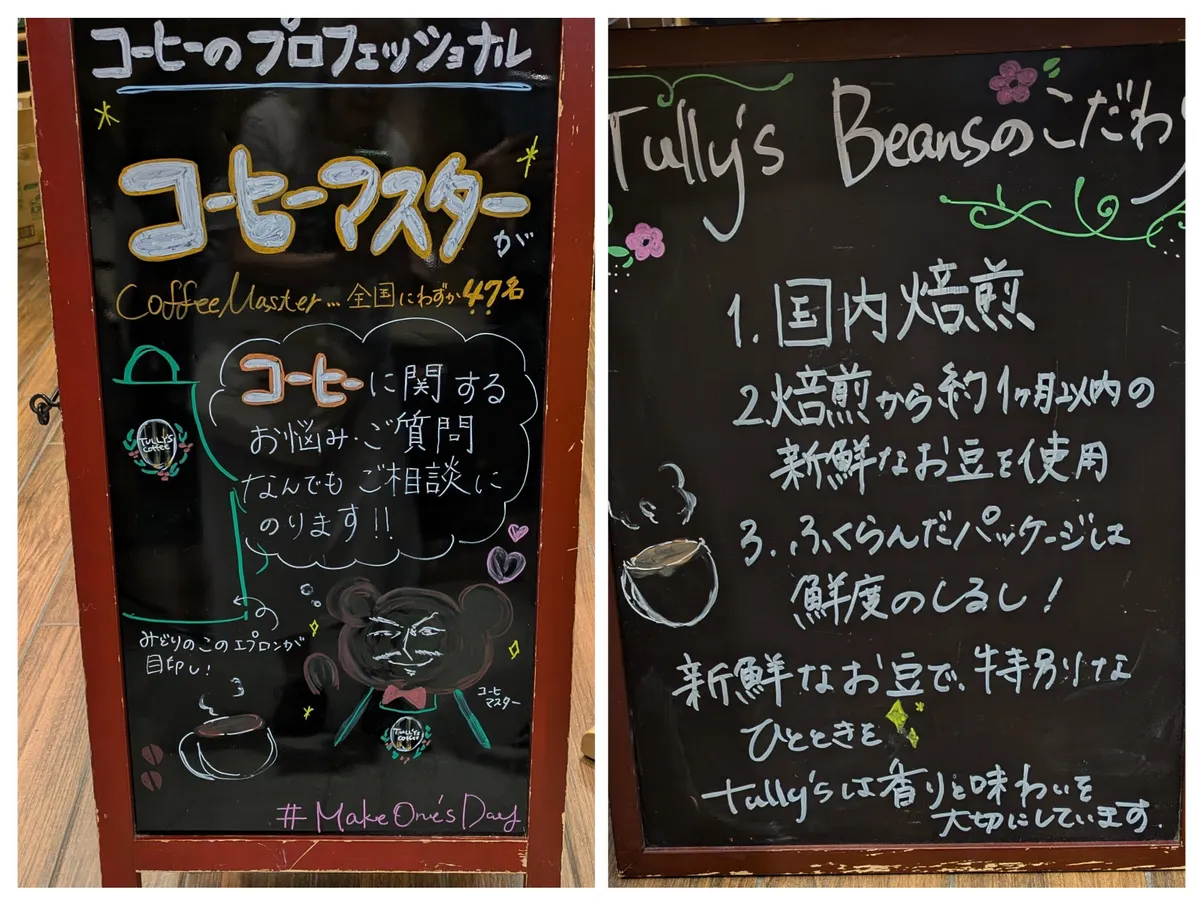 コーヒーのプロフェッショナル
コーヒーマスターが
Coffee Masster... 全国にわずか47名
コーヒーに関する
お悩み・ご質問
なんでも ご相談に
のります!!
TULLY'S
COFFEE
みどりのこのエプロンが
目印し!
コーヒー
マスター
TULLY'S
COFFEE
#MakeOne'sDay
Tully's Beansのこだわり
1. 国内焙煎
2. 焙煎から約1ヶ月以内の
新鮮なお豆を使用
3. ふくらんだパッケージは
鮮度のしるし!
新鮮なお豆で、特別な
ひとときを
Tully'sは香りと味わいを
大切にしています.